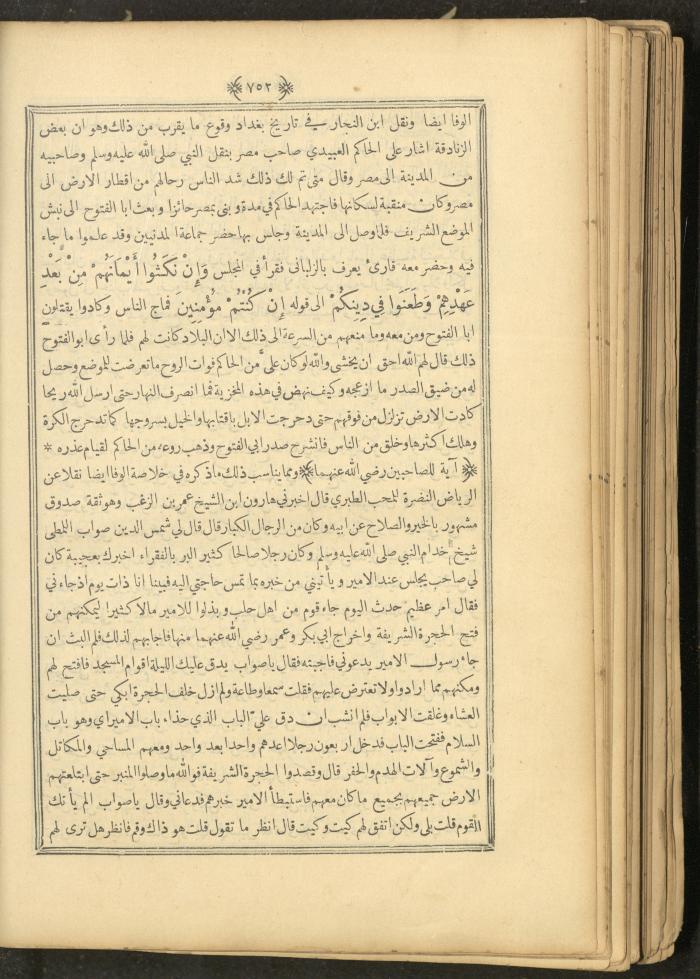 ﴿٧٥٢﴾
الوفا ايضا ونقل ابن النجار في تاريخ بغداد وقوع ما يقرب من ذلك وهو ان بعض
الزنادقة اشار على الحاكم العبيدي صاحب مصر بنقل النبي صلى الله عليه وسلم وصاحبيه
من المدينة الى مصر وقال متى تم لك ذلك شد الناس رحالهم من اقطار الارض الى
مصر وكان منقبة لسكانها فاجتهد الحاكم في مدة وبنى بمصر حائزا وبعث ابا الفتوح الى نبش
الموضع الشريف فلما وصل الى المدينة وجلس بها حضر جماعة المدنيين وقد علموا ما جاء
فيه وحضر معه قارئ يعرف بالزلباني فقرأ في المجلس وَإِنْ نَكَثُوا أَيْمَانَهُمْ مِنْ بَعْدِ
عَهْدِهِمْ وَطَعَنُوا فِي دِينِكُمْ الى قوله إِنْ كُنْتُمْ مُؤْمِنِينَ فماج الناس وكادوا يقتلون
ابا الفتوح ومن معه وما منعهم من السرعة الى ذلك الا ان البلاد كانت لهم فلما رأى ابو الفتوح
ذلك قال لهم الله احق ان يخشى والله لو كان عليّ من الحاكم فوات الروح ما تعرضت للموضع وحصل
له من ضيق الصدر ما ازعجه وكيف نهض في هذه المخزية فما انصرف النهار حتى ارسل الله ريحا
كادت الارض تزلزل من فوقهم حتى دحرجت الابل باقتابها والخيل بسروجها كما تدحرج الكرة
وهلك اكثرها وخلق من الناس فانشرح صدر ابي الفتوح وذهب روعه من الحاكم لقيام عذره *
﴿ آية للصاحبين رضي الله عنهما ﴾ ومما يناسب ذلك ما ذكره في خلاصة الوفا ايضا نقلا عن
الرياض النضرة للمحب الطبري قال اخبرني هارون ابن الشيخ عمر بن الزغب وهو ثقة صدوق
مشهور بالخير والصلاح عن ابيه وكان من الرجال الكبار قال قال لي شمس الدين صواب اللمطي
شيخ خدام النبي صلى الله عليه وسلم وكان رجلا صالحا كثير البر بالفقراء اخبرك بعجيبة كان
لي صاحب يجلس عند الامير و يأتيني من خبره بما تمس حاجتي اليه فبينا انا ذات يوم اذ جاءني
فقال امر عظيم حدث اليوم جاء قوم من اهل حلب و بذلوا للامير مالا كثيرا ليمكنهم من
فتح الحجرة الشريفة واخراج ابي بكر وعمر رضي الله عنهما منها فاجابهم لذلك فلم البث ان
جاء رسول الامير يدعوني فاجبته فقال يا صواب يدق عليك الليلة اقوام المسجد فافتح لهم
ومكنهم مما ارادوا ولا تعترض عليهم فقلت سمعا وطاعة ولم ازل خلف الحجرة ابكي حتى صليت
العشاء وغلقت الابواب فلم انشب ان دق عليّ الباب الذي حذاء باب الامير اي وهو باب
السلام ففتحت الباب فدخل اربعون رجلا اعدهم واحدا بعد واحد ومعهم المساحي والمكاتل
والشموع وآلات الهدم والحفر قال وقصدوا الحجرة الشريفة فوالله ما وصلوا المنبر حتى ابتلعتهم
الارض جميعهم بجميع ما كان معهم فاستبطأ الامير خبرهم فدعاني وقال يا صواب الم يأتك
القوم قلت بلى ولكن اتفق لهم كيت وكيت قال انظر ما تقول قلت هو ذاك وقم فانظر هل ترى لهم